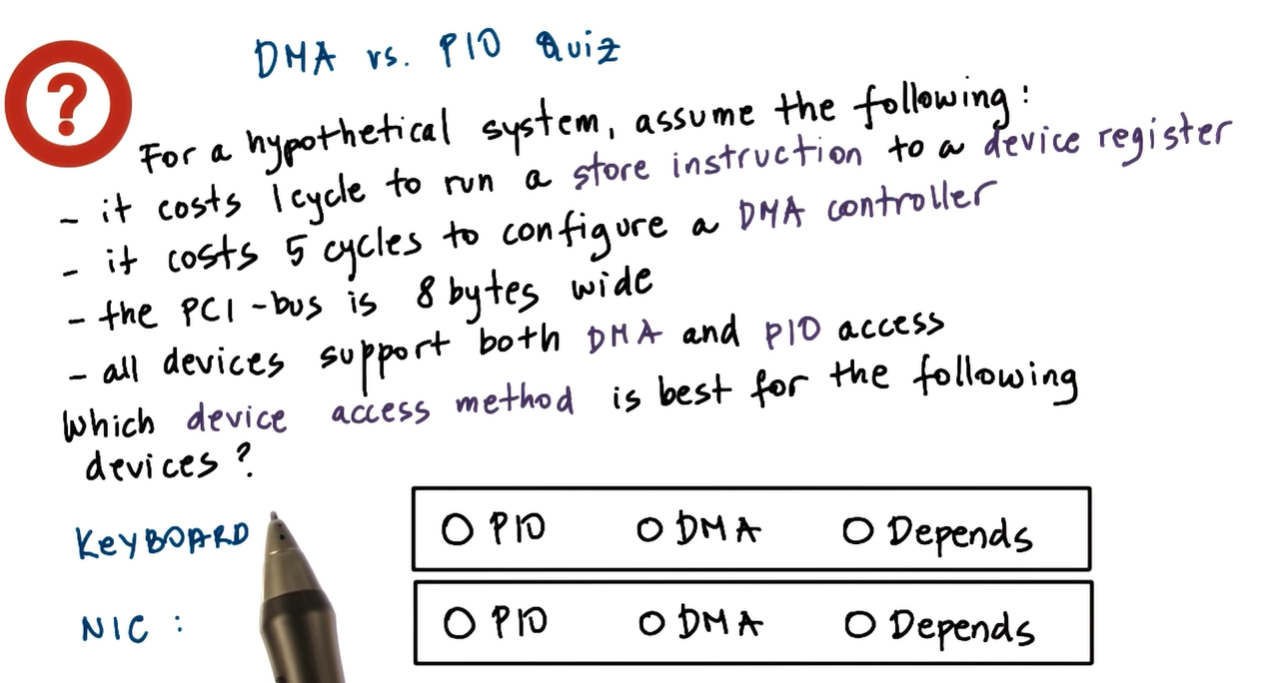 ?
DMA vs. PIO Quiz
For a hypothetical system, assume the following:
- it costs 1 cycle to run a store instruction to a device register
- it costs 5 cycles to configure a DMA controller
- the PCI-bus is 8 bytes wide
- all devices support both DMA and PIO access
Which device access method is best for the following
devices?
KEYBOARD O PIO O DMA O Depends
NIC: O PIO O DMA O Depends